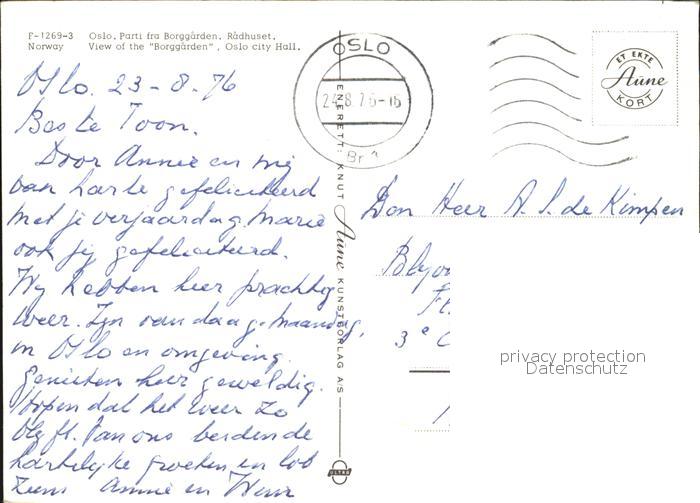 F-1269-3 Oslo. Parti fra Borggården. Rådhuset.
Norway View of the "Borggården". Oslo city Hall.
OSLO
24.8.76-16
Br 1
ET EKTE
Aune
KORT
Oslo. 23-8-76
Beste Toon.
Door Annie en mij
van harte gefeliciteerd
met je verjaardag. Marie
ook jij gefeliciteerd.
Wij hebben hier prachtig
weer. Zijn vandaag. Maandag.
in Oslo en omgeving.
Genieten hier geweldig.
Hopen dat het weer zo
blyft. Van ons beiden de
hartelijke groeten en tot
ziens Annie en
ENERETT: KNUT Aune KUNSTFORLAG A/S
Den Heer A. S. de Kimpen
3e
privacy protection
Datenschutz